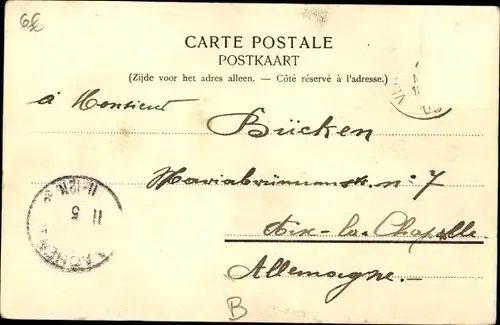 CARTE POSTALE
POSTKAART
(Zijde voor het adres alleen. — Côté réservé à l'adresse.)
à Monsieur
Bücken
Mariabrunnenstr. n: 7
Aix-la-Chapelle
Allemagne.-
B
AACHEN
11
5
11-12N.
VL